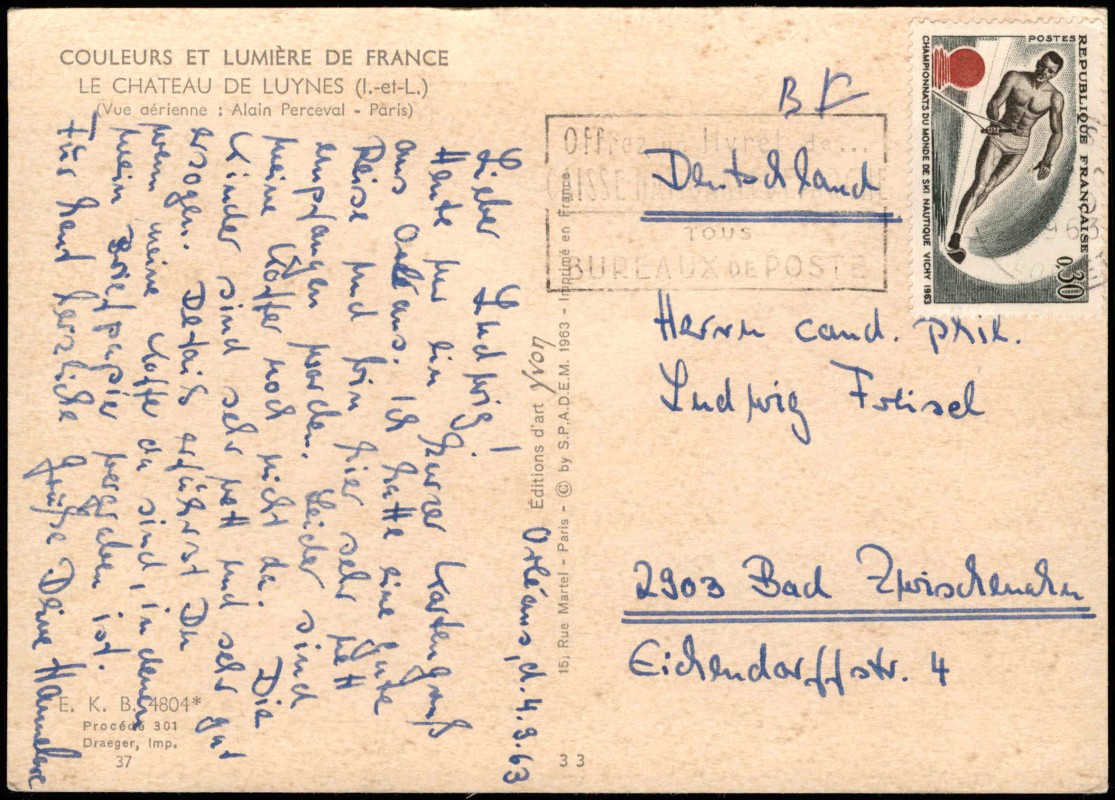 COULEURS ET LUMIÈRE DE FRANCE
LE CHATEAU DE LUYNES (I.-et-L.)
(Vue aérienne : Alain Perceval - Paris)
Orléans, d. 4.9.63
Lieber Ludwig!
Heute nur ein kurzer Kartengruß
aus Orléans. Ich hatte eine gute
Reise und bin hier sehr nett
empfangen worden. Leider sind
meine Koffer noch nicht da. Die
Kinder sind sehr nett und sehr gut
erzogen. Details erfährst Du
wenn meine Koffer da sind, in denen
mein Briefpapier vergraben ist.
Für heut herzliche Grüße Deine Hannelore
E. K. B. 4804*
Procédé 301
Draeger, Imp.
37
Éditions d'art Yvon
15, Rue Martel - Paris - © by S.P.A.D.E.M. 1963 - Imprimé en France
3 3
Offrez un livret de...
CAISSE D'EPARGNE
TOUS
BUREAUX DE POSTE
1963
POSTES
RÉPUBLIQUE FRANÇAISE
CHAMPIONNATS DU MONDE DE SKI NAUTIQUE VICHY 1963
0,30
Deutschland
Herrn cand. phil.
Ludwig Freisel
2903 Bad Zwischenahn
Eichendorffstr. 4